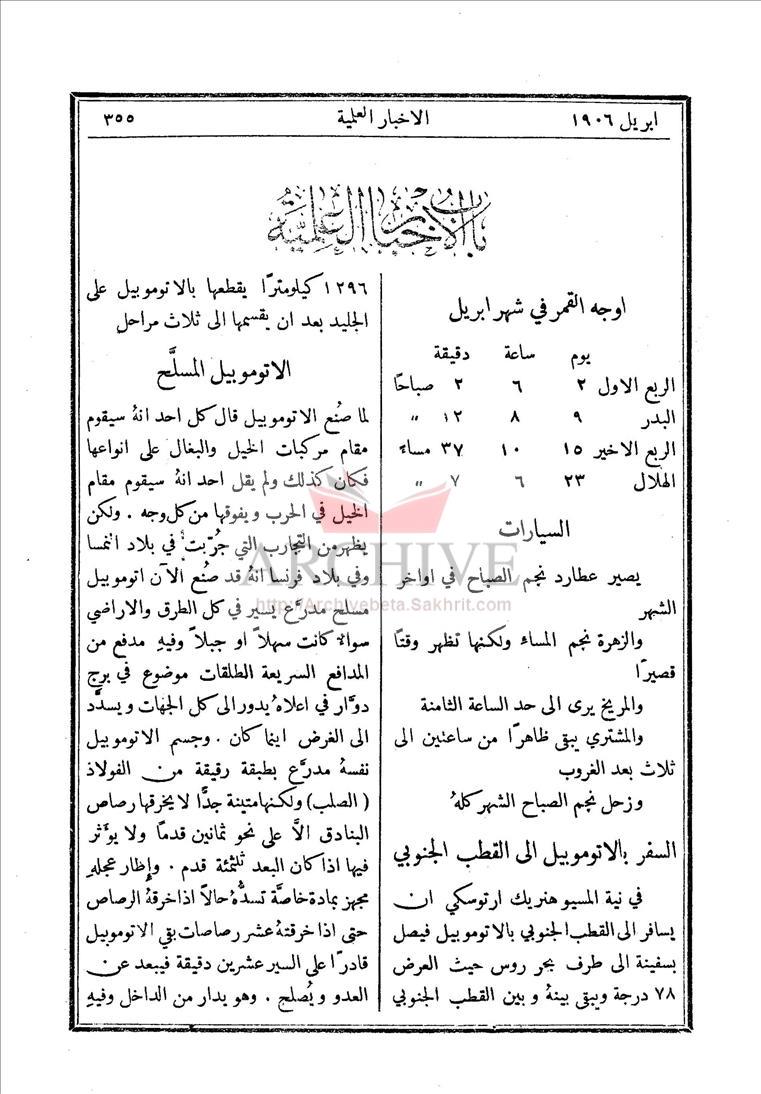 ابريل ١٩٠٦
الاخبار العلمية
٣٥٥
باب الاخبار العلمية
اوجه القمر في شهر ابريل
يوم ساعة دقيقة
الربع الاول ٢ ٦ ٢ صباحًا
البدر ٩ ٨ ١٢ "
الربع الاخير ١٥ ١٠ ٣٧ مساء
الهلال ٢٣ ٦ ٧ "
السيارات
يصير عطارد نجم الصباح في اواخر
الشهر
والزهرة نجم المساء ولكنها تظهر وقتًا
قصيرًا
والمريخ يرى الى حد الساعة الثامنة
والمشتري يبقى ظاهرًا من ساعتين الى
ثلاث بعد الغروب
وزحل نجم الصباح الشهر كلهُ
السفر بالاتوموبيل الى القطب الجنوبي
في نية المسيو هنريك ارتوسكي ان
يسافر الى القطب الجنوبي بالاتوموبيل فيصل
بسفينة الى طرف بحر روس حيث العرض
٧٨ درجة ويبقى بينهُ وبين القطب الجنوبي
١٢٩٦ كيلومترًا يقطعها بالاتوموبيل على
الجليد بعد ان يقسمها الى ثلاث مراحل
الاتوموبيل المسلَّح
لما صُنع الاتوموبيل قال كل احد انهُ سيقوم
مقام مركبات الخيل والبغال على انواعها
فكان كذلك ولم يقل احد انهُ سيقوم مقام
الخيل في الحرب ويفوقها من كل وجه . ولكن
يظهر من التجارب التي جُرّبت في بلاد النمسا
وفي بلاد فرنسا انهُ قد صُنع الآن اتوموبيل
مسلح مدرَّع يسير في كل الطرق والاراضي
سواء كانت سهلاً او جبلاً وفيهِ مدفع من
المدافع السريعة الطلقات موضوع في برج
دوَّار في اعلاهُ يدور الى كل الجهات ويسدَّد
الى الغرض اينما كان . وجسم الاتوموبيل
نفسهُ مدرَّع بطبقة رقيقة من الفولاذ
( الصلب ) ولكنها متينة جدًّا لا يخرقها رصاص
البنادق الاَّ على نحو ثمانين قدمًا ولا يؤَثر
فيها اذا كان البعد ثلثمئة قدم . وإطار عجلهِ
مجهز بمادة خاصَّة تسدُّهُ حالاً اذا خرقهُ الرصاص
حتى اذا خرقتهُ عشر رصاصات بقي الاتوموبيل
قادرًا على السير عشرين دقيقة فيبعد عن
العدو ويُصلح . وهو يدار من الداخل وفيهِ
ARCHIVE
http://Archivebeta.Sakhrit.com